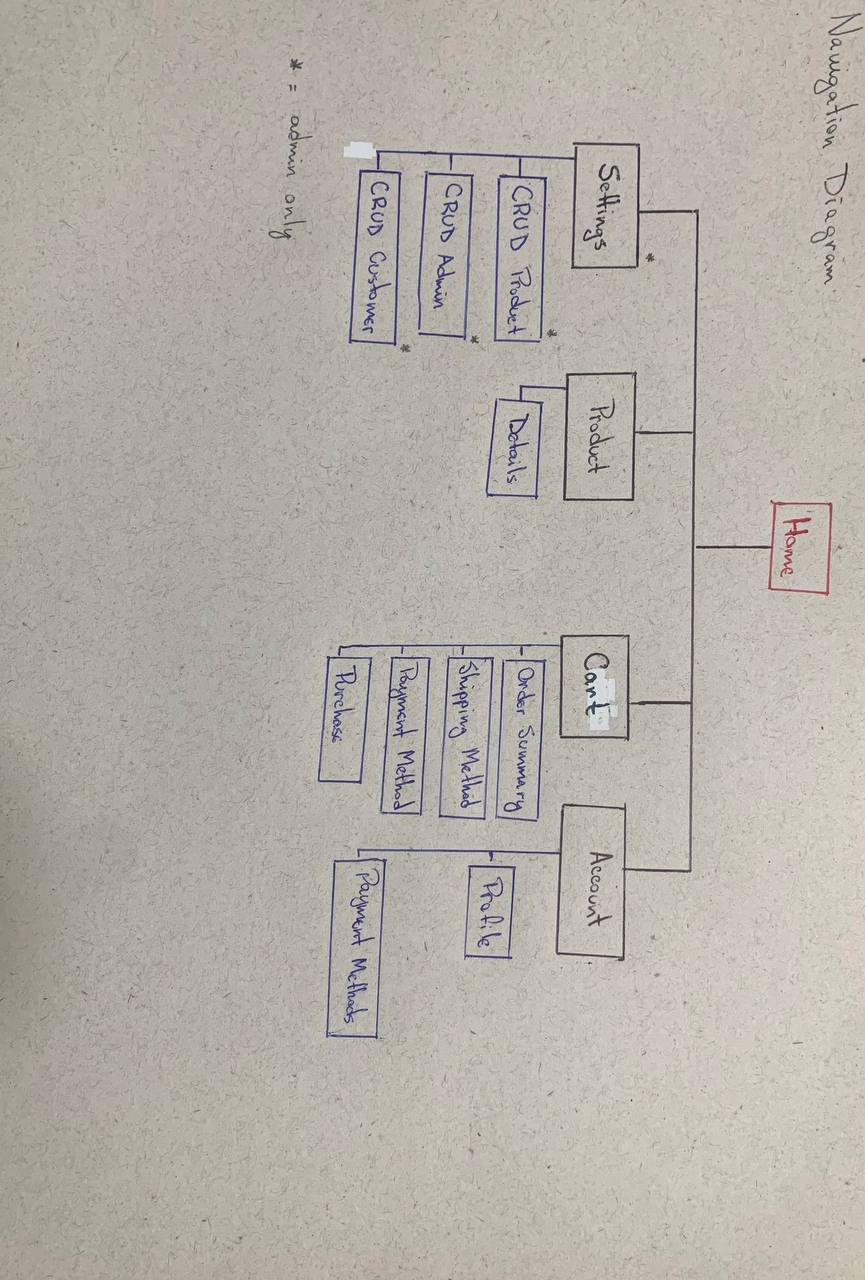 Navigation Diagram.
Home
Settings *
CRUD Product *
CRUD Admin *
CRUD Customer *
Product
Details
Cart
Order Summary
Shipping Method
Payment Method
Purchase
Account
Profile
Payment Methods
* = admin only